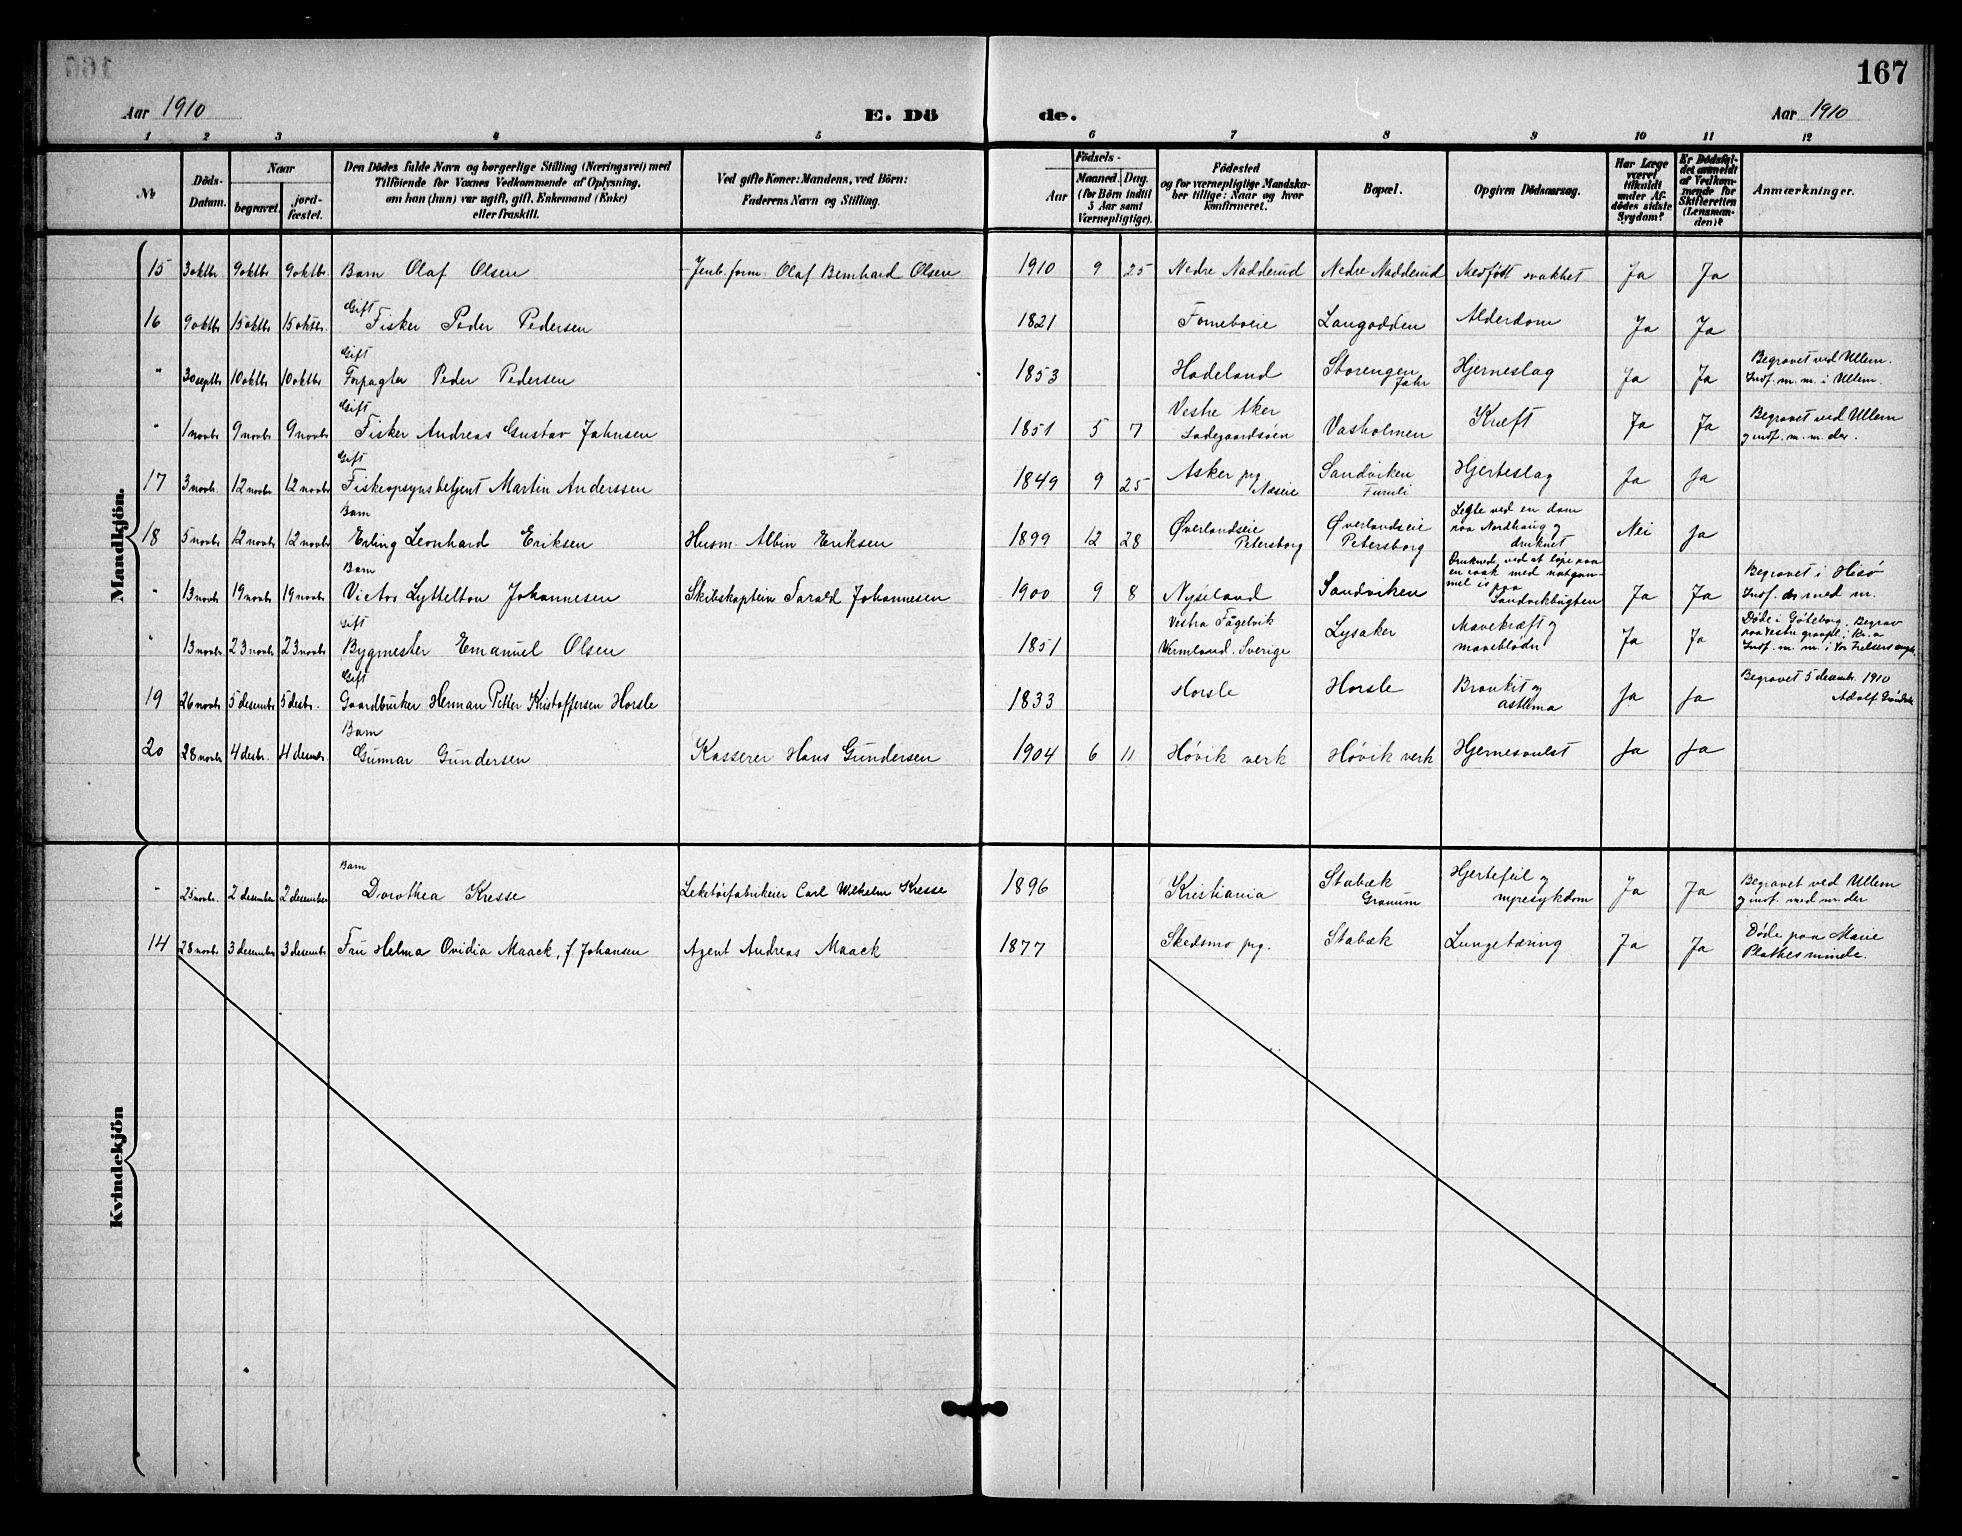 167
Aar 1910 E. Dö de. Aar 1910
1 2 3 4 5 6 7 8 9 10 11 12
№
Döds-Datum.
Naar
begravet. jord-fæstet.
Den Dödes fulde Navn og borgerlige Stilling (Næringsvei) med
Tilföiende for Voxnes Vedkommende af Oplysning,
om han (hun) var ugift, gift, Enkemand (Enke)
eller fraskilt.
Ved gifte Koner: Mandens, ved Börn:
Faderens Navn og Stilling.
Födsels-
Aar Maaned. Dag.
(for Börn indtil
5 Aar samt
Værnepligtige).
Födested
og for værnepligtige Mandska-
ber tillige: Naar og hvor
konfirmeret.
Bopæl.
Opgiven Dödsaarsag.
Har Læge
været
tilkaldt
under Af-
dödes sidste
Sygdom?
Er Dödsfal-
det anmeldt
af Vedkom-
mende for
Skifteretten
(Lensman-
den)?
Anmærkninger.
Mandkjön.
15 3 oktbr 9 oktbr 9 oktbr. Barn Olaf Olsen Jernb.form. Olaf Bernhard Olsen 1910 9 25 Nedre Nadderud Nedre Nadderud Medfött svakhet Ja Ja
Gift
16 9 oktbr 15 oktbr 15 oktbr. Fisker Peder Pedersen 1821 Forneboeie Langodden Alderdom Ja Ja
Gift
" 30 septbr 10 oktbr 10 oktbr Forpagter Peder Pedersen 1853 Hadeland Storengen Jahr Hjerneslag Ja Ja Begravet ved Ullern.
Indf. m. m. i Ullern.
Gift
" 1 novbr 9 novbr 9 novbr Fisker Andreas Gustav Jahnsen 1851 5 7 Vestre Aker Ladegaardsöen Vasholmen Kræft Ja Ja Begravet ved Ullern
og indf. m. m. der.
Gift
17 3 novb. 12 novbr 12 novbr Fiskeopsynsbetjent Martin Anderssen 1849 9 25 Asker prg Næseie Sandviken Furuli Hjerteslag Ja Ja
Barn
18 5 novbr 12 novbr 12 novbr Erling Leonhard Eriksen Husm. Albin Eriksen 1899 12 28 Øverlandseie Petersborg Øverlandseie Petersborg Legte ved en dam
paa Nordhaug og
druknet Nei Ja
Barn
" 13 novbr 19 novbr 19 novbr Victor Lyttelton Johannesen Skibskaptein Tarald Johannesen 1900 9 8 Nyseland Sandviken Druknede, ved at löpe paa
en raak med natgam-
mel is paa
Sandvikbugten Ja Ja Begravet i Hisö
Indf. der med m.
Gift
" 13 novbr 23 novbr 23 novbr Bygmester Emanuel Olsen 1851 Vestra Fågelvik
Vermland. Sverige Lysaker Mavekræft og
maveblödn Ja Ja Döde i Göteborg. Begrav
paa Vestre gravpl. i Kr.a
Indf. m. m. i Vor Frelsers
Gift
19 26 novbr 5 desember 5 desbr. Gaardbruker Herman Petter Kristoffersen Horsle 1833 Horsle Horsle Bronkit og
asthma Ja Ja Begravet 5 desembr. 1910
Adolf
Barn
20 28 novbr 4 desbr. 4 desembr Gunnar Gundersen Kasserer Hans Gundersen 1904 6 11 Høvik verk Høvik verk Hjernesvulst Ja Ja
Kvindekjön
Barn
" 25 novbr. 2 desember 2 desember Dorothea Kresse Leketöifabrikeier Carl Wilhelm Kresse 1896 Kristiania Stabæk Granum Hjertefeil og
nyresykdom Ja Ja Begravet ved Ullern
og indf. med m. der
14 28 novbr 3 desember 3 desember Fru Helma Ovidia Maack, f Johansen Agent Andreas Maack 1877 Skedsmo prg. Stabæk Lungetæring Ja Ja Döde paa Marie
Plathes minde.